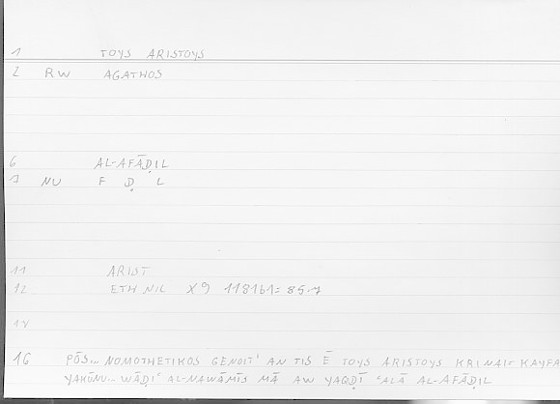 1 TOYS ARISTOYS
2 RW AGATHOS
6 AL-AFĀḌIL
7 NU F Ḍ L
11 ARIST
12 ETH NIC X 9 1181b1= 85.7
14
16 PŌS... NOMOTHETIKOS GENOIT' AN TIS Ē TOYS ARISTOYS KRINAI= KAYFA
YAKŪNU... WĀḌI' AL-NAWĀMĪS MĀ AW YAQḌĪ 'ALĀ AL-AFĀḌIL